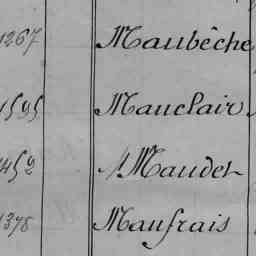 1267 Maubêche
1595 Mauclair
452 Maudet
1378 Maufrais